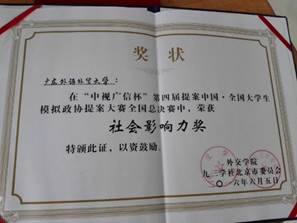 奖状
广东外语外贸大学：
在“中视广信杯”第四届提案中国·全国大学生
模拟政协提案大赛全国总决赛中，荣获
社会影响力奖
特颁此证，以资鼓励
外交学院
九三学社北京市委员会
六年六月五日